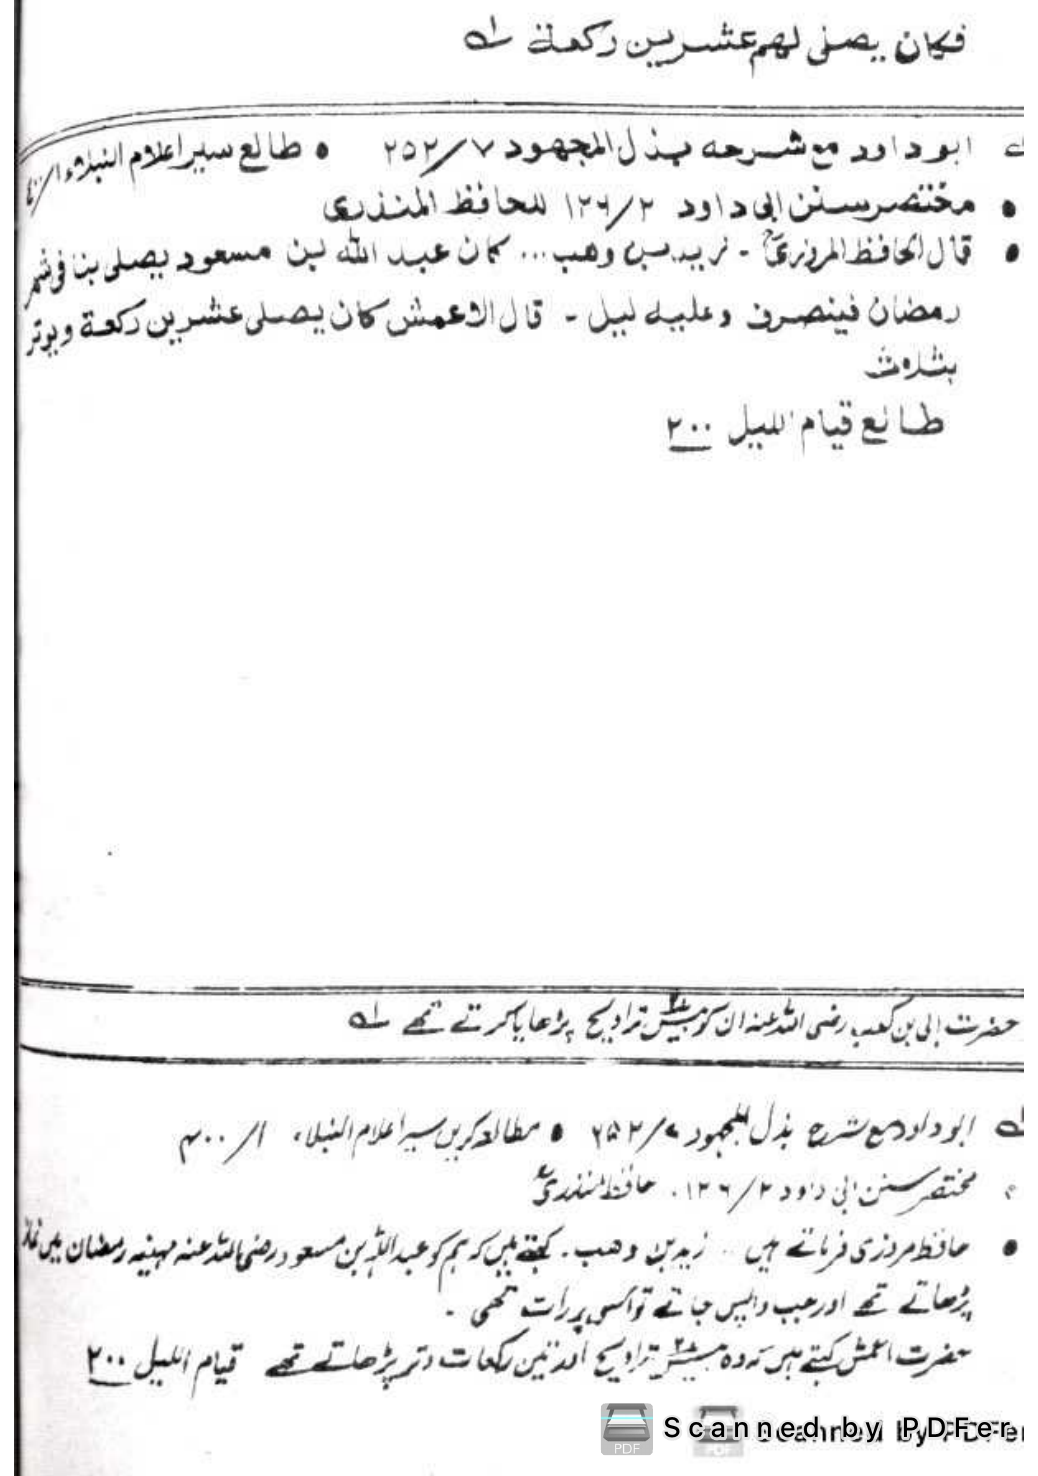 فكان يصلى لهم عشرين ركعة له
له ابو داود مع شرحه بذل المجهود ٧/٢٥٢ • طالع سير اعلام النبلاء ١/٤٠٠
• مختصر سنن ابى داود ٢/١٢٦ للحافظ المنذرى
• قال الحافظ المروزىؒ - زيد بن وهب... كان عبد الله بن مسعود يصلى بنا فى شهر
رمضان فينصرف وعليه ليل - قال الاعمش كان يصلى عشرين ركعة ويوتر
بثلاث
طالع قيام الليل ٢٠٠
حضرت ابی بن کعب رضی اللہ عنہ ان کو بیس ۲۰ تراویح پڑھایا کرتے تھے لہ
لہ ابوداود مع شرح بذل المجہود ۷/۲۵۲ • مطالعہ کریں سیر اعلام النبلاء ۱/۴۰۰
• مختصر سنن ابی داود ۲/۱۲۶. حافظ منذریؒ
• حافظ مروزی فرماتے ہیں .. زید بن وهب. کہتے ہیں کہ ہم کو عبداللہ بن مسعود رضی اللہ عنہ مہینہ رمضان میں نماز
پڑھاتے تھے اور جب واپس جاتے تو اسی پر رات تھی -
حضرت اعمش کہتے ہیں کہ وہ بیس ۲۰ تراویح اور تین رکعات وتر پڑھاتے تھے قیام اللیل ۲۰۰
Scanned by PDFer
Scanned by PDFer